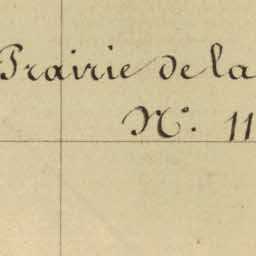 Prairie de la
N°. 11